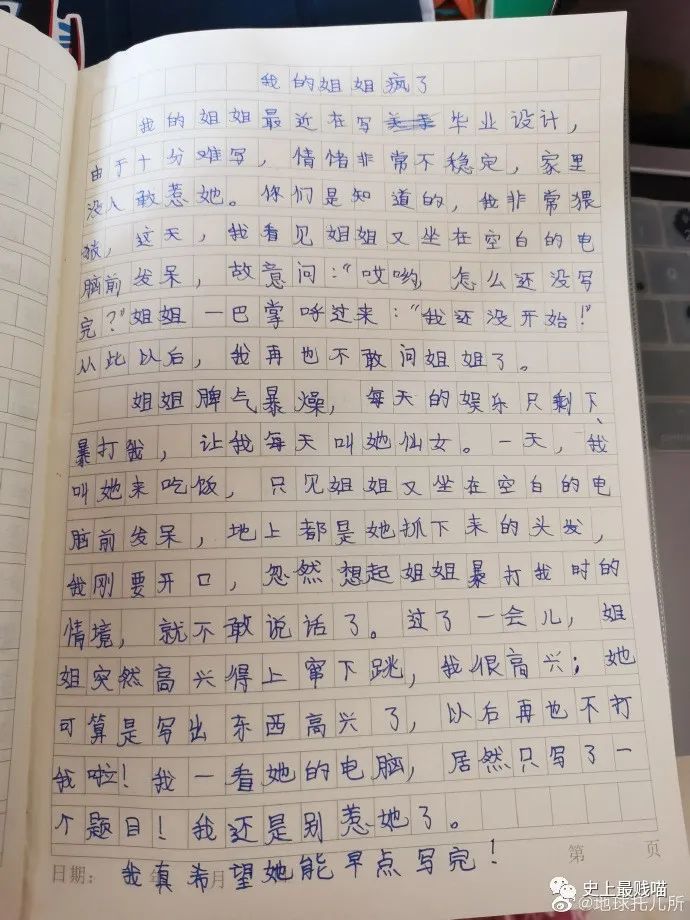 我的姐姐疯了
我的姐姐最近在写毕业设计，
由于十分难写，情绪非常不稳定，家里
没人敢惹她。你们是知道的，我非常猥
琐，这天，我看见姐姐又坐在空白的电
脑前发呆，故意问：“哎哟，怎么还没写
完？”姐姐一巴掌呼过来：“我还没开始！”
从此以后，我再也不敢问姐姐了。
姐姐脾气暴燥，每天的娱乐只剩下、
暴打我，让我每天叫她仙女。一天，我
叫她来吃饭，只见姐姐又坐在空白的电
脑前发呆，地上都是她抓下来的头发，
我刚要开口，忽然想起姐姐暴打我时的
情境，就不敢说话了。过了一会儿，姐
姐突然高兴得上窜下跳，我很高兴；她
可算是写出东西高兴了，以后再也不打
我啦！我一看她的电脑，居然只写了一
个题目！我还是别惹她了。
我真希望她能早点写完！
日期： 年 月 第 页
史上最贱喵
@地球托儿所